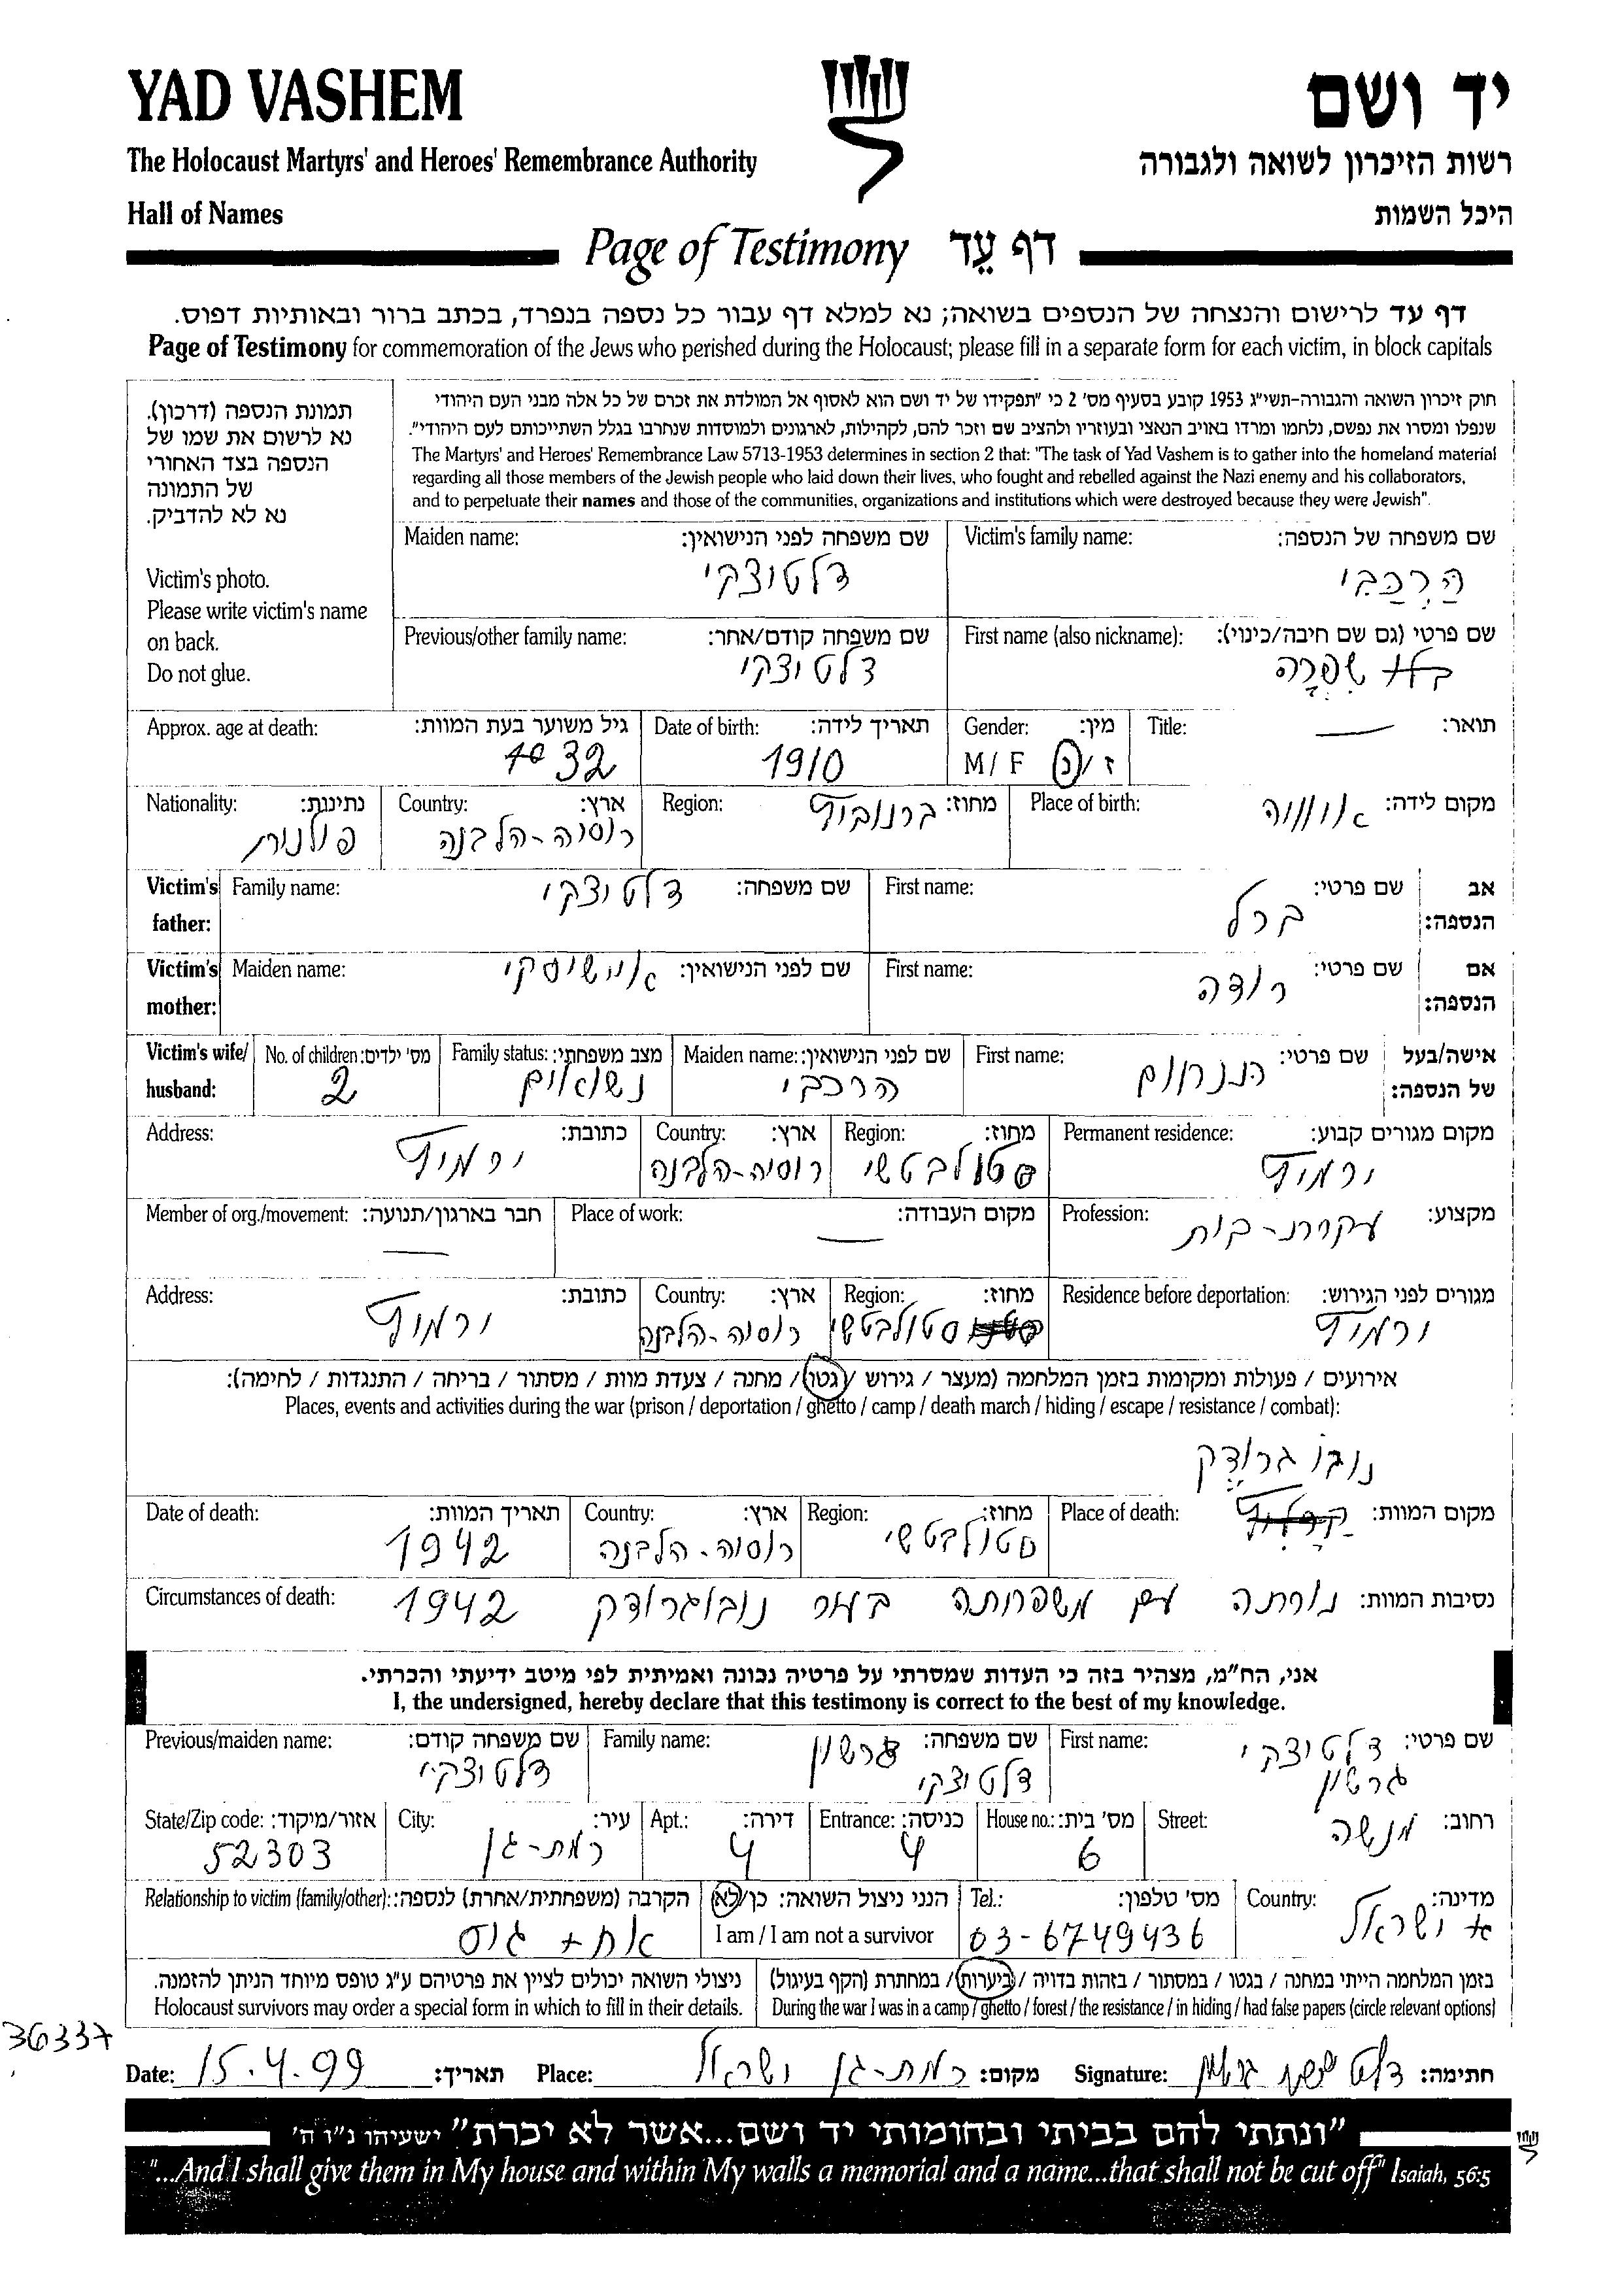 YAD VASHEM
יד ושם
The Holocaust Martyrs' and Heroes' Remembrance Authority
רשות הזיכרון לשואה ולגבורה
Hall of Names
היכל השמות
Page of Testimony דף עֵד
דף עד לרישום והנצחה של הנספים בשואה; נא למלא דף עבור כל נספה בנפרד, בכתב ברור ובאותיות דפוס.
Page of Testimony for commemoration of the Jews who perished during the Holocaust; please fill in a separate form for each victim, in block capitals
תמונת הנספה (דרכון).
נא לרשום את שמו של
הנספה בצד האחורי
של התמונה
נא לא להדביק.
Victim's photo.
Please write victim's name
on back.
Do not glue.
חוק זיכרון השואה והגבורה-תשי"ג 1953 קובע בסעיף מס' 2 כי "תפקידו של יד ושם הוא לאסוף אל המולדת את זכרם של כל אלה מבני העם היהודי
שנפלו ומסרו את נפשם, נלחמו ומרדו באויב הנאצי ובעוזריו ולהציב שם וזכר להם, לקהילות, לארגונים ולמוסדות שנחרבו בגלל השתייכותם לעם היהודי".
The Martyrs' and Heroes' Remembrance Law 5713-1953 determines in section 2 that: "The task of Yad Vashem is to gather into the homeland material
regarding all those members of the Jewish people who laid down their lives, who fought and rebelled against the Nazi enemy and his collaborators,
and to perpetuate their names and those of the communities, organizations and institutions which were destroyed because they were Jewish".
Victim's family name: שם משפחה של הנספה:
הַרְכַּבִי
Maiden name: שם משפחה לפני הנישואין:
דלטיצקי
First name (also nickname): שם פרטי (גם שם חיבה/כינוי):
שִפְרָה
Previous/other family name: שם משפחה קודם/אחר:
דלטיצקי
Title: תואר:
Gender: מין:
M / F ז / נ
Date of birth: תאריך לידה:
1910
Approx. age at death: גיל משוער בעת המוות:
32
Place of birth: מקום לידה:
Region: מחוז:
Country: ארץ:
רוסיה-הלבנה
Nationality: נתינות:
פולנית
Victim's father: אב הנספה:
First name: שם פרטי: ברל
Family name: שם משפחה: דלטיצקי
Victim's mother: אם הנספה:
First name: שם פרטי:
Maiden name: שם לפני הנישואין:
Victim's wife/ husband: אישה/בעל של הנספה:
First name: שם פרטי:
Maiden name: שם לפני הנישואין: הרכבי
Family status: מצב משפחתי:
No. of children: מס' ילדים: 2
Permanent residence: מקום מגורים קבוע:
Region: מחוז: סטולבטשי
Country: ארץ: רוסיה-הלבנה
Address: כתובת:
Profession: מקצוע: עקרת-בית
Place of work: מקום העבודה:
Member of org./movement: חבר בארגון/תנועה:
Residence before deportation: מגורים לפני הגירוש:
Region: מחוז: סטולבטשי
Country: ארץ: רוסיה-הלבנה
Address: כתובת:
אירועים / פעולות ומקומות בזמן המלחמה (מעצר / גירוש / גטו / מחנה / צעדת מוות / מסתור / בריחה / התנגדות / לחימה):
Places, events and activities during the war (prison / deportation / ghetto / camp / death march / hiding / escape / resistance / combat):
נובו גרודק
Place of death: מקום המוות:
Region: מחוז: סטולבטשי
Country: ארץ: רוסיה-הלבנה
Date of death: תאריך המוות: 1942
Circumstances of death: נסיבות המוות: נורתה עם משפחתה נובוגרודק 1942
אני, הח"מ, מצהיר בזה כי העדות שמסרתי על פרטיה נכונה ואמיתית לפי מיטב ידיעתי והכרתי.
I, the undersigned, hereby declare that this testimony is correct to the best of my knowledge.
First name: שם פרטי: דלטיצקי
גרשון
Family name: שם משפחה: גרשון
דלטיצקי
Previous/maiden name: שם משפחה קודם:
דלטיצקי
Street: רחוב: מנשה
House no.: מס' בית: 6
Entrance: כניסה: 4
Apt.: דירה: 4
City: עיר: רמת-גן
State/Zip code: אזור/מיקוד: 52303
Country: מדינה: ישראל
Tel.: מס' טלפון: 03-6749436
הנני ניצול השואה: כן/לא
I am / I am not a survivor
Relationship to victim (family/other): הקרבה (משפחתית/אחרת) לנספה:
אח + גיס
בזמן המלחמה הייתי במחנה / בגטו / במסתור / בזהות בדויה / ביערות / במחתרת (הקף בעיגול)
During the war I was in a camp / ghetto / forest / the resistance / in hiding / had false papers (circle relevant options)
ניצולי השואה יכולים לציין את פרטיהם ע"ג טופס מיוחד הניתן להזמנה.
Holocaust survivors may order a special form in which to fill in their details.
36337
Date: 15.4.99 תאריך:
Place: רמת-גן ישראל מקום:
Signature: חתימה:
"ונתתי להם בביתי ובחומותי יד ושם...אשר לא יכרת" ישעיהו נ"ו ה'
"...And I shall give them in My house and within My walls a memorial and a name...that shall not be cut off" Isaiah, 56:5